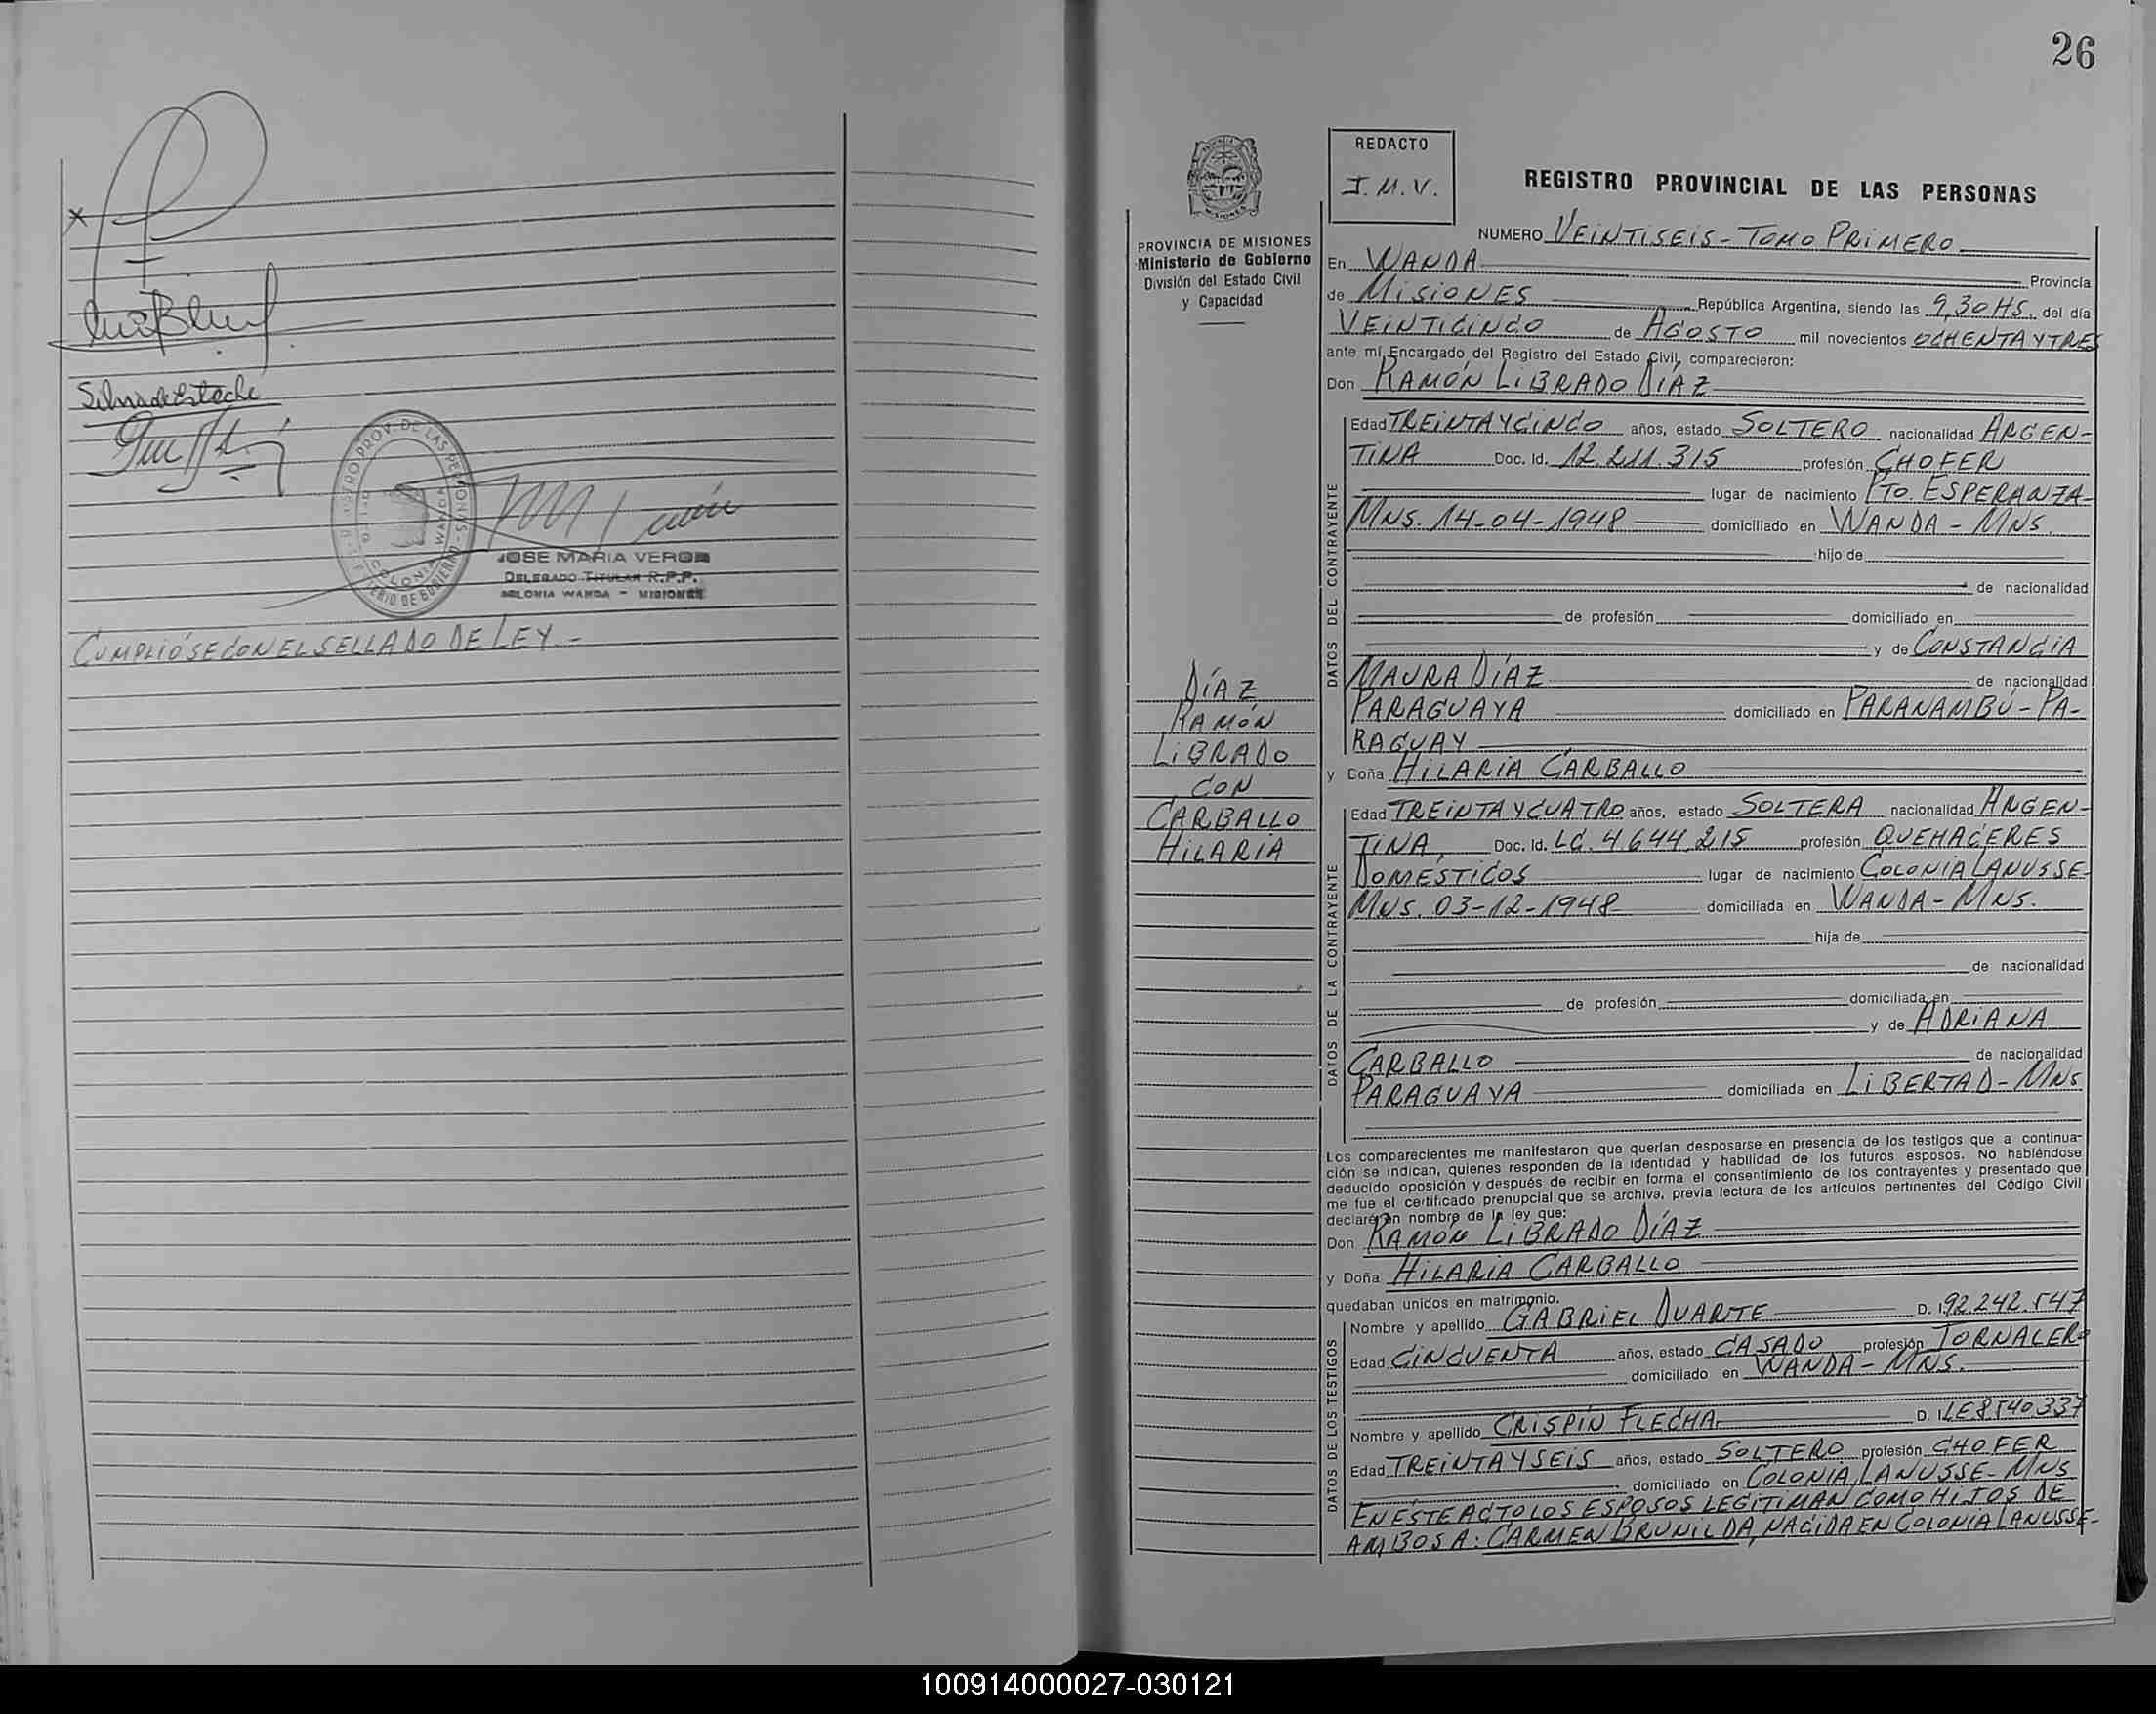 Selmira de Stoche
JOSE MARIA VERON
DELEGADO TITULAR R.P.P.
COLONIA WANDA - MISIONES
CUMPLIÓSE CON EL SELLADO DE LEY.-
26
REDACTO
J.M.V.
REGISTRO PROVINCIAL DE LAS PERSONAS
PROVINCIA DE MISIONES
Ministerio de Gobierno
División del Estado Civil
y Capacidad
NUMERO VEINTISEIS - TOMO PRIMERO
En WANDA Provincia
de MISIONES República Argentina, siendo las 9,30 HS. del día
VEINTICINCO de AGOSTO mil novecientos OCHENTA Y TRES
ante mí, Encargado del Registro del Estado Civil, comparecieron:
Don RAMÓN LIBRADO DÍAZ
DATOS DEL CONTRAYENTE
Edad TREINTA Y CINCO años, estado SOLTERO nacionalidad ARGEN-
TINA Doc. Id. 12.211.315 profesión CHOFER
lugar de nacimiento PTO. ESPERANZA-
MNS. 14-04-1948 domiciliado en WANDA - MNS.
hijo de
de nacionalidad
de profesión domiciliado en
y de CONSTANCIA
MAURA DÍAZ de nacionalidad
PARAGUAYA domiciliado en PARANAMBÚ - PA-
RAGUAY
DÍAZ
RAMÓN
LIBRADO
CON
CARBALLO
HILARIA
y Doña HILARIA CARBALLO
DATOS DE LA CONTRAYENTE
Edad TREINTA Y CUATRO años, estado SOLTERA nacionalidad ARGEN-
TINA, Doc. Id. LC. 4.644.215 profesión QUEHACERES
DOMÉSTICOS lugar de nacimiento COLONIA LANUSSE-
MNS. 03-12-1948 domiciliada en WANDA - MNS.
hija de
de nacionalidad
de profesión domiciliada en
y de ADRIANA
CARBALLO de nacionalidad
PARAGUAYA domiciliada en LIBERTAD - MNS
Los comparecientes me manifestaron que querían desposarse en presencia de los testigos que a continua-
ción se indican, quienes responden de la identidad y habilidad de los futuros esposos. No habiéndose
deducido oposición y después de recibir en forma el consentimiento de los contrayentes y presentado que
me fue el certificado prenupcial que se archiva, previa lectura de los artículos pertinentes del Código Civil
declaré en nombre de la ley que:
Don RAMÓN LIBRADO DÍAZ
y Doña HILARIA CARBALLO
quedaban unidos en matrimonio.
DATOS DE LOS TESTIGOS
Nombre y apellido GABRIEL DUARTE D. I. 92.242.547
Edad CINCUENTA años, estado CASADO profesión JORNALERO
domiciliado en WANDA - MNS.
Nombre y apellido CRISPIN FLECHA D. I. LE 8.540.337
Edad TREINTA Y SEIS años, estado SOLTERO profesión CHOFER
domiciliado en COLONIA LANUSSE - MNS
EN ESTE ACTO LOS ESPOSOS LEGITIMAN COMO HIJOS DE
AMBOS A: CARMEN BRUNILDA, NACIDA EN COLONIA LANUSSE-
100914000027-030121